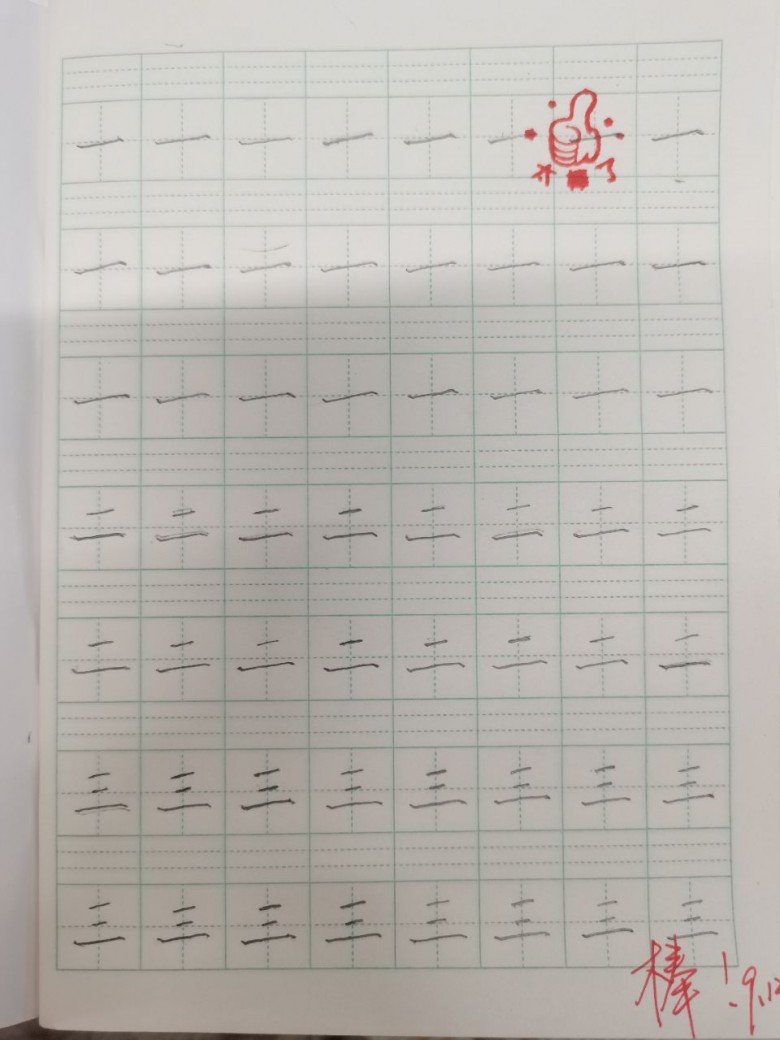 一 一 一 一 一 一 一 一
一 一 一 一 一 一 一 一
一 一 一 一 一 一 一 一
二 二 二 二 二 二 二 二
二 二 二 二 二 二 二 二
三 三 三 三 三 三 三 三
三 三 三 三 三 三 三 三
棒！9.12